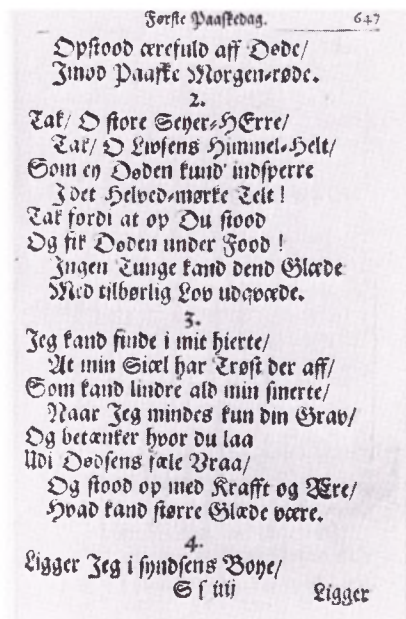 Første Paaskedag. 647
Opstood ærefuld aff Døde/
Imod Paaske Morgen-røde.
2.
Tak/ O store Seyer-HErre/
Tak/ O Livsens Himmel-Helt/
Som ey Døden kund' indsperre
I det Helved-mørke Telt!
Tak fordi at op Du stood
Og fik Døden under Food!
Ingen Tunge kand dend Glæde
Med tilbørlig Lov udqvæde.
3.
Jeg kand finde i mit hierte/
At min Siæl har Trøst der aff/
Som kand lindre ald min smerte/
Naar Jeg mindes kun din Grav/
Og betænker hvor du laa
Udi Dødsens fæle Vraa/
Og stood op med Krafft og Ære/
Hvad kand større Glæde være.
4.
Ligger Jeg i syndsens Boye/
S s iiij Ligger